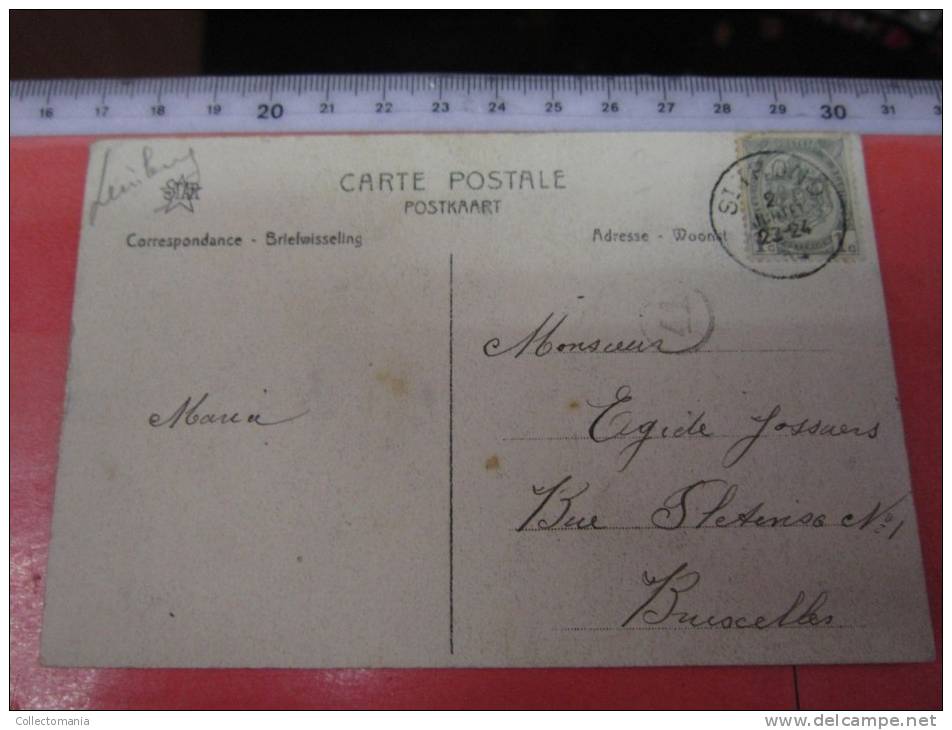 16 17 18 19 20 21 22 23 24 25 26 27 28 29 30 31
STAR
CARTE POSTALE
POSTKAART
Correspondance - Briefwisseling
Adresse - Woonst
23-24
Monsieur
Egide Jossaers
Maria
Rue
No 1
Bruxelles
Collectomania
www.delcampe.net